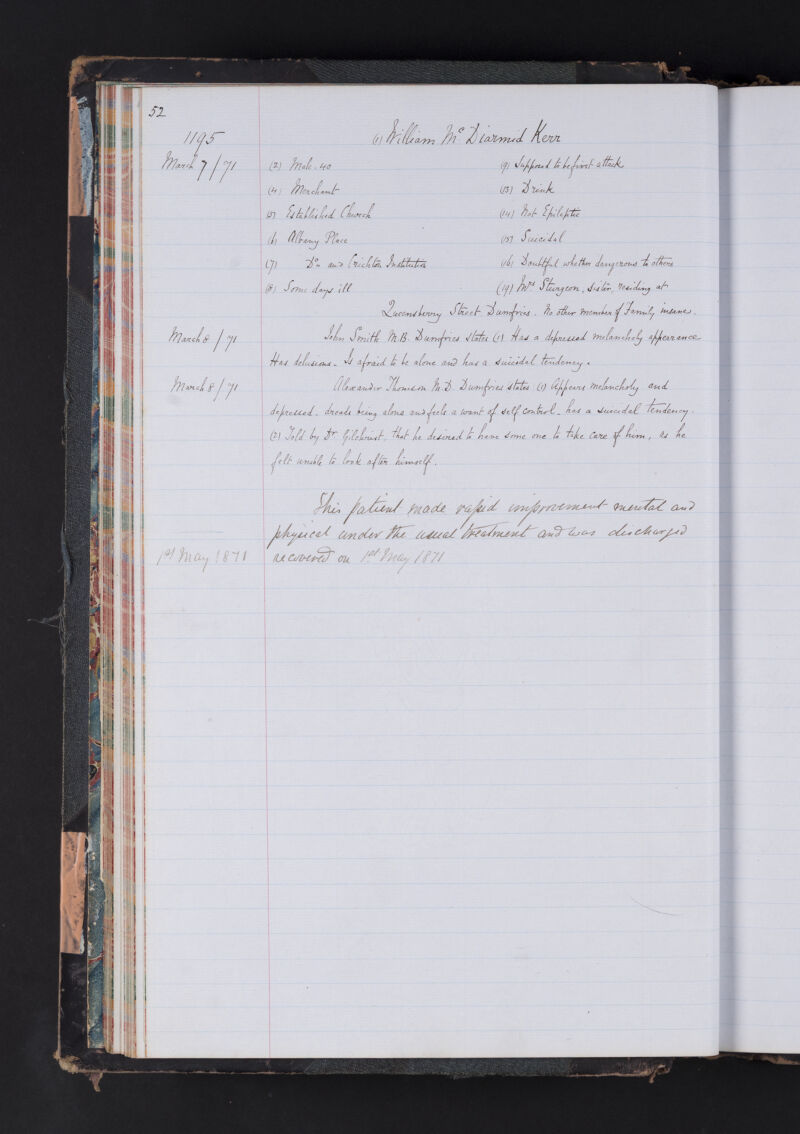 52
1195 (1) William Mc Diarmid Kerr
March 7/71 (2) Male. 40 (9) Supposed to be first attack
(4) Merchant (13) Drink
(5) Established Church (14) Not Epileptic
(6) Albany Place (15) Suicidal
(7) Do and Crichton Institution (16) Doubtful whether dangerous to others
(8) Some days ill (19) Mrs Sturgeon, sister, residing at
Queensberry Street Dumfries. No other member of Family insane.
March 8/71 John Smith M.B. Dumfries states (1) Has a depressed melancholy appearance
Has delusions. Is afraid to be alone and has a suicidal tendency.
March 8/71 Alexander Thomson M.D. Dumfries states (1) Appears melancholy and
depressed. dreads being alone and feels a want of self control. has a suicidal tendency.
(2) Told by Dr Gilchrist, that he desired to have some one to take care of him, as he
felt unable to look after himself.
This patient made rapid improvement mental and
physical under the usual treatment and was discharged
1st May 1871 recovered on 1st May 1871